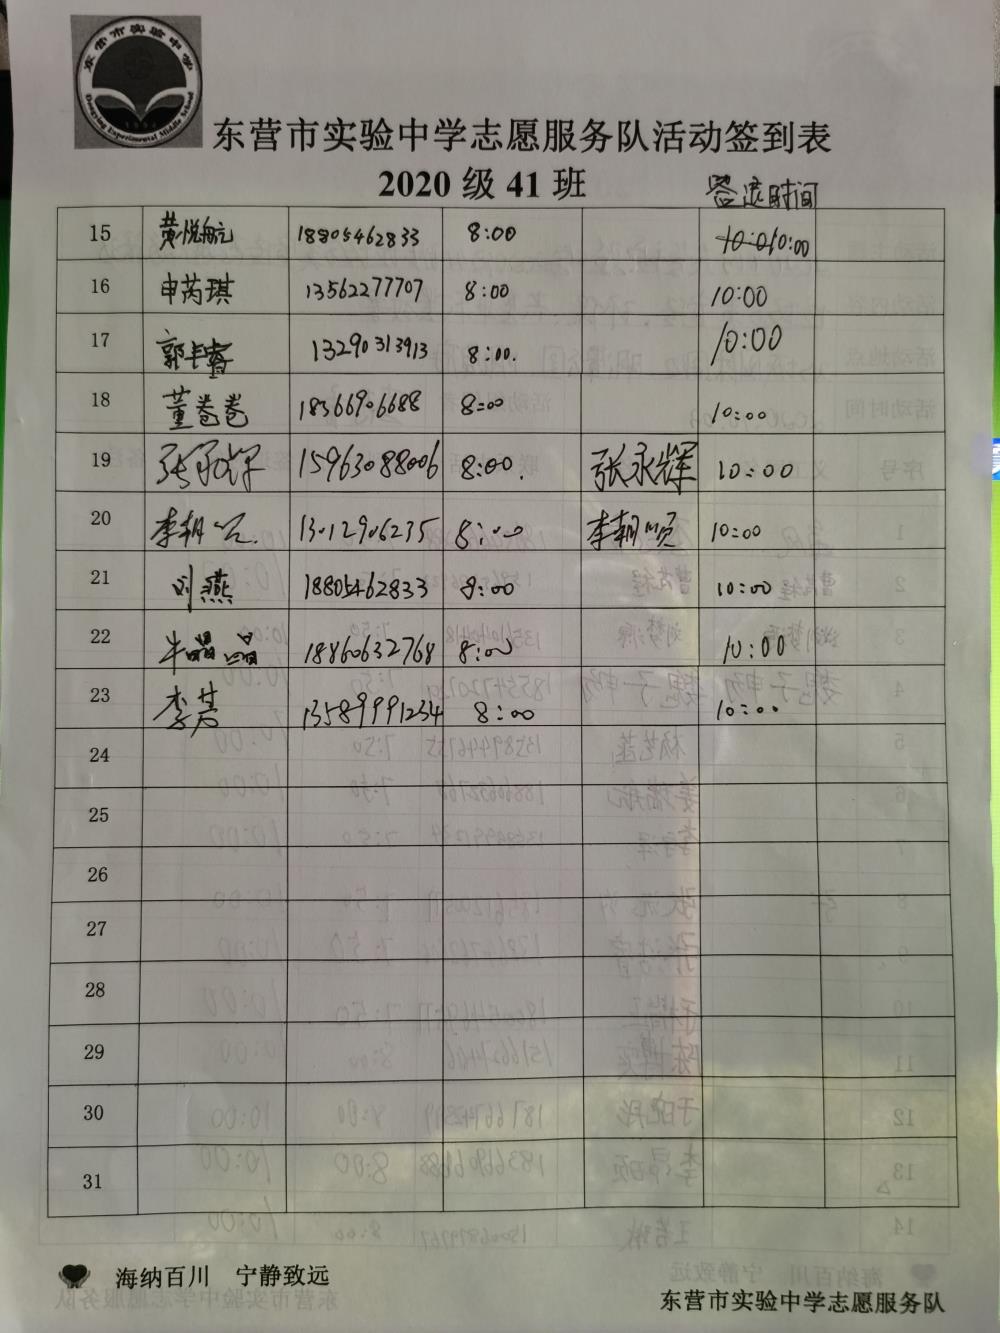 东营市实验中学
Dongying Experimental Middle School
东营市实验中学志愿服务队活动签到表
2020 级 41 班
签退时间
15 黄悦航 18805462833 8:00 10:0 10:00
16 申芮琪 13562277707 8:00 10:00
17 郭丰睿 13290313913 8:00. 10:00
18 董卷卷 18366906688 8:00 10:00
19 张永辉 15963088006 8:00. 张永辉 10:00
20 李朝 13012906235 8:00 李朝 10:00
21 刘燕 18805462833 8:00 10:00
22 牛晶晶 18860632768 8:00 10:00
23 李芳 13589991234 8:00 10:00
24
25
26
27
28
29
30
31
海纳百川 宁静致远
东营市实验中学志愿服务队